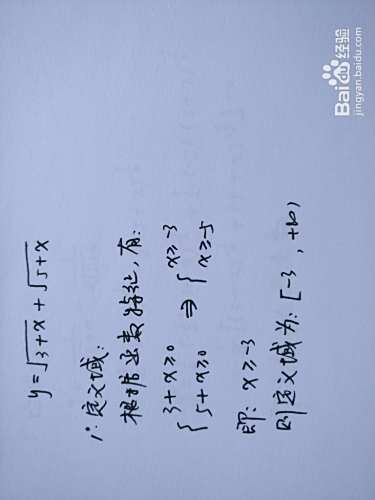 y=√3+x + √5+x
1:定义域:
根据函数特征,有:
{3+x≥0 ⇒ {x≥-3
{5+x≥0 {x≥-5
即: x≥-3
则定义域为: [-3, +∞)
Baidu经验
jingyan.baidu.com